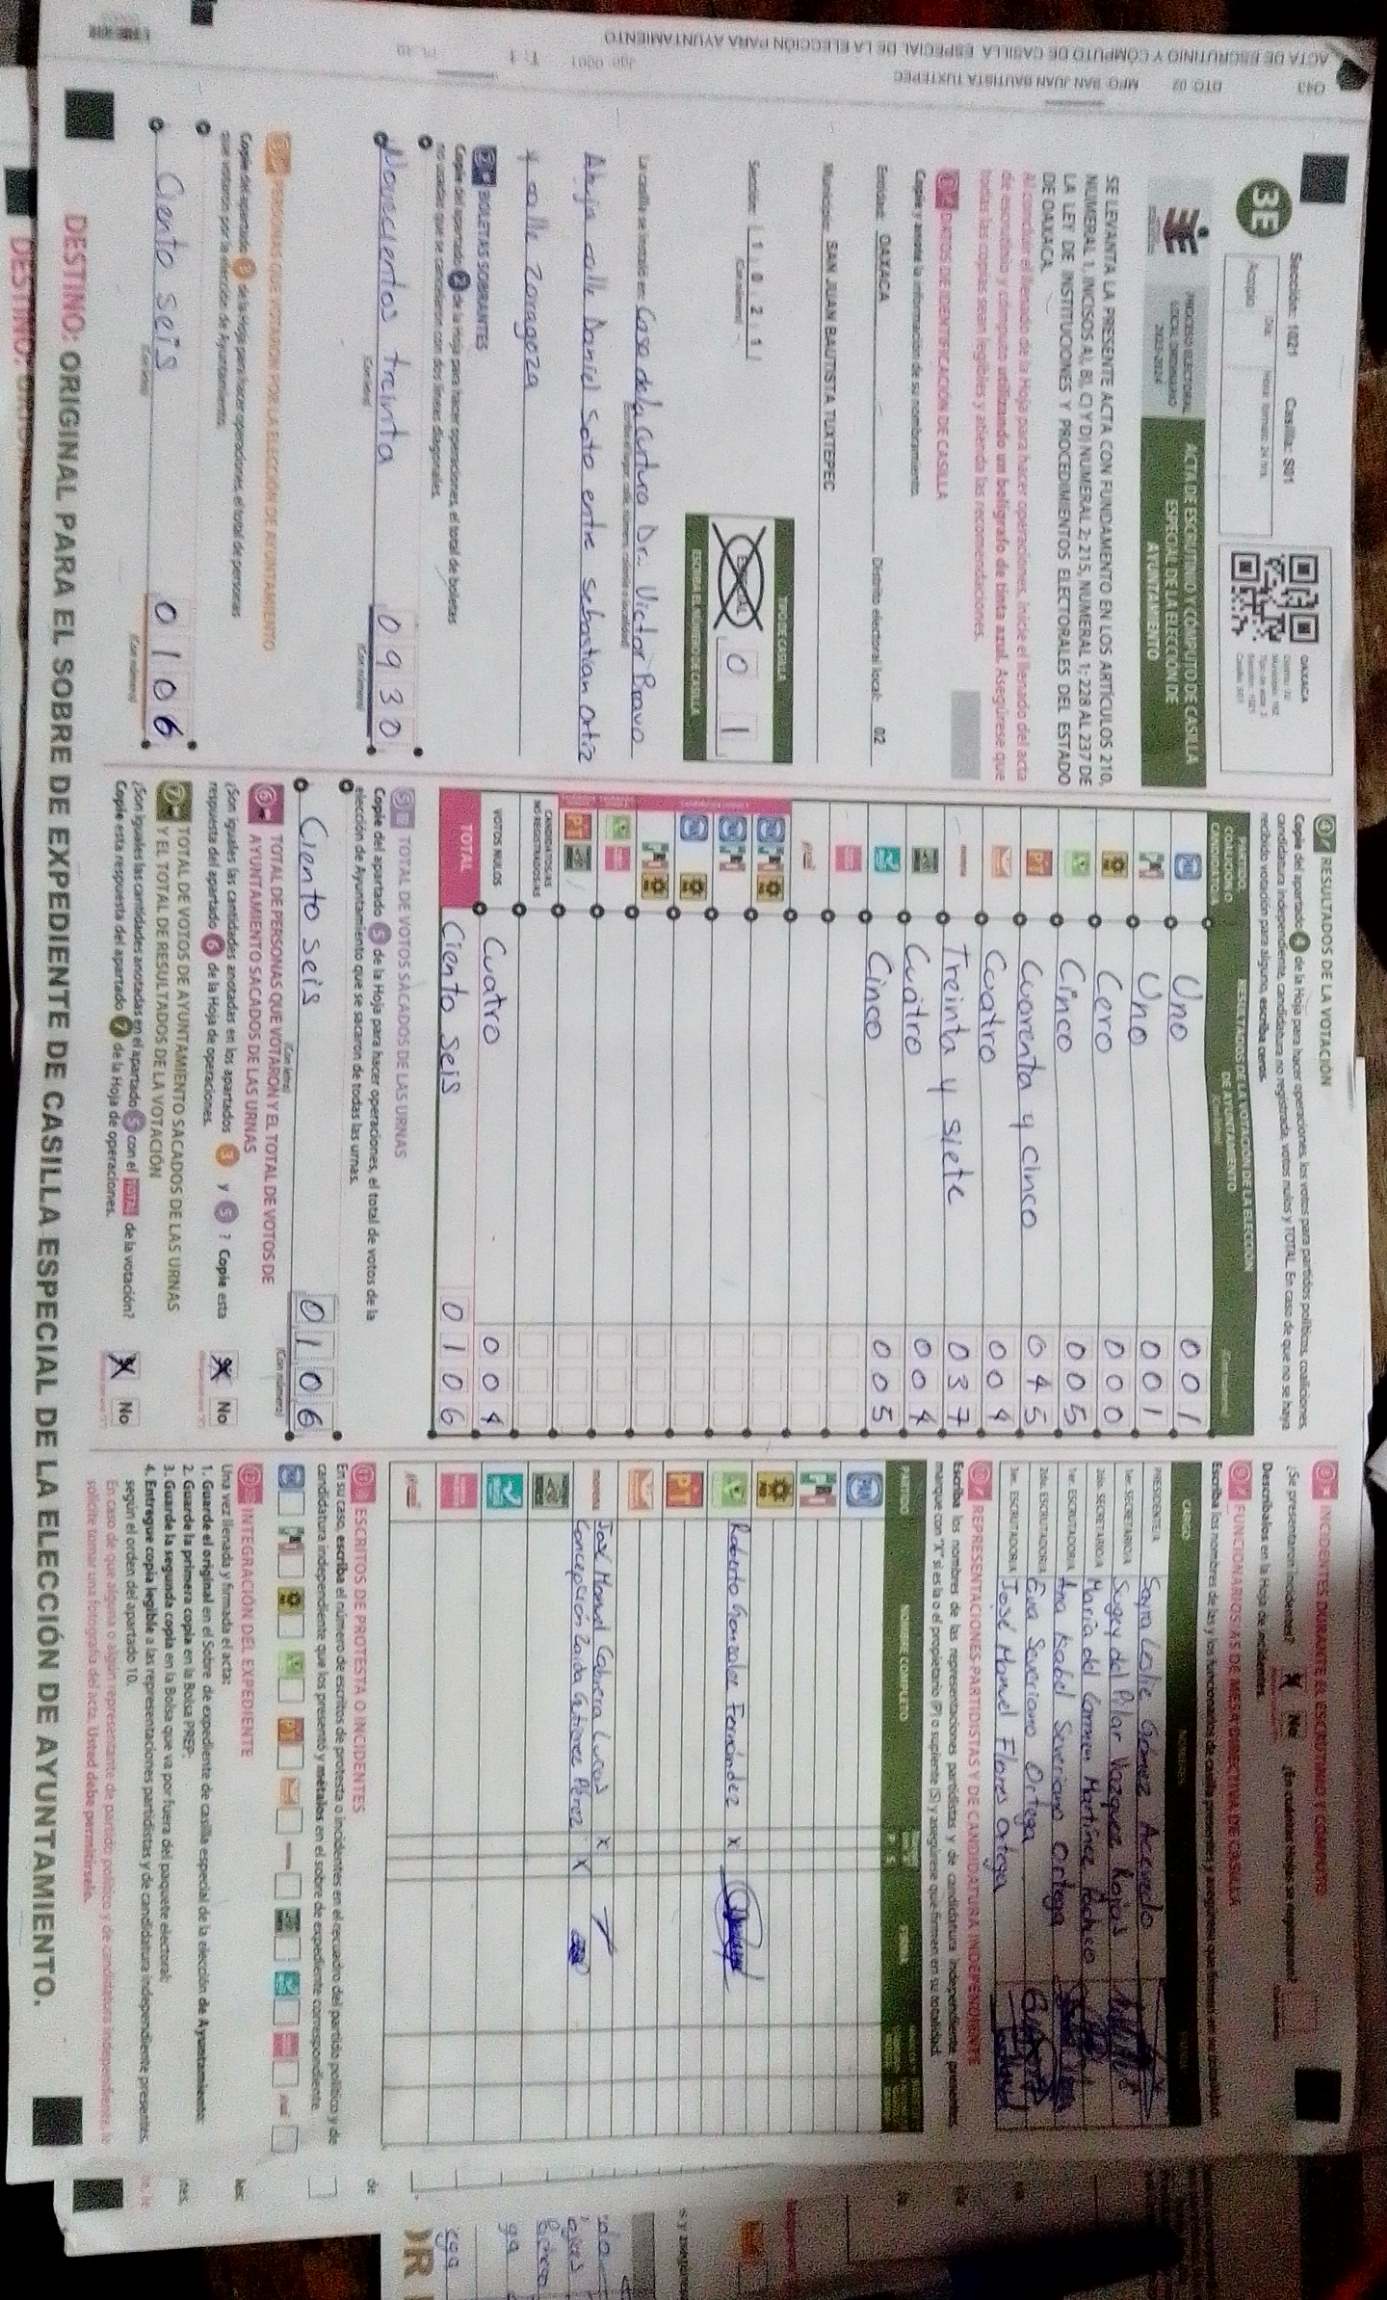 Q43 DTO: 02 MPO: SAN JUAN BAUTISTA TUXTEPEC
ACTA DE ESCRUTINIO Y CÓMPUTO DE CASILLA ESPECIAL DE LA ELECCIÓN PARA AYUNTAMIENTO
Sección: 1021 Casilla: S01
3E
Acopio
OAXACA
PROCESO ELECTORAL
LOCAL ORDINARIO
2023-2024
ACTA DE ESCRUTINIO Y CÓMPUTO DE CASILLA
ESPECIAL DE LA ELECCIÓN DE
AYUNTAMIENTO
SE LEVANTA LA PRESENTE ACTA CON FUNDAMENTO EN LOS ARTÍCULOS 210,
NUMERAL 1, INCISOS A), B), C) Y D) NUMERAL 2; 215, NUMERAL 1; 228 AL 237 DE
LA LEY DE INSTITUCIONES Y PROCEDIMIENTOS ELECTORALES DEL ESTADO
DE OAXACA.
Al concluir el llenado de la Hoja para hacer operaciones, inicie el llenado del acta
de escrutinio y cómputo utilizando un bolígrafo de tinta azul. Asegúrese que
todas las copias sean legibles y atienda las recomendaciones.
1 DATOS DE IDENTIFICACIÓN DE CASILLA
Copie y anote la información de su nombramiento.
Entidad: OAXACA Distrito electoral local: 02
Municipio: SAN JUAN BAUTISTA TUXTEPEC
Sección: 1 0 2 1
(Con número)
TIPO DE CASILLA
0 1
ESCRIBA EL NÚMERO DE CASILLA
La casilla se instaló en: Casa de la Cultura Dr. Victor Bravo
Ahuja calle Daniel Soto entre sebastian Ortiz
y calle Zaragoza
2 BOLETAS SOBRANTES
Copie del apartado 2 de la Hoja para hacer operaciones, el total de boletas
no usadas que se cancelaron con dos líneas diagonales.
Novecientos treinta 0930
(Con letra) (Con número)
3 PERSONAS QUE VOTARON POR LA ELECCIÓN DE AYUNTAMIENTO
Copie del apartado 3 de la Hoja para hacer operaciones, el total de personas
que votaron por la elección de Ayuntamiento.
Ciento seis 0106
(Con letra) (Con número)
4 RESULTADOS DE LA VOTACIÓN
Copie del apartado 4 de la Hoja para hacer operaciones, los votos para partidos políticos, coaliciones,
candidatura independiente, candidatura no registrada, votos nulos y TOTAL. En caso de que no se haya
recibido votación para alguno, escriba ceros.
PARTIDO, COALICIÓN O CANDIDATO/A
RESULTADOS DE LA VOTACIÓN DE LA ELECCIÓN
DE AYUNTAMIENTO
Uno 001
Uno 001
Cero 000
Cinco 005
PT Cuarenta y cinco 045
Cuatro 004
morena Treinta y siete 037
Cuatro 004
Cinco 005
CANDIDATOS/AS
NO REGISTRADOS/AS
VOTOS NULOS Cuatro 004
TOTAL Ciento seis 0106
5 TOTAL DE VOTOS SACADOS DE LAS URNAS
Copie del apartado 5 de la Hoja para hacer operaciones, el total de votos de la
elección de Ayuntamiento que se sacaron de todas las urnas.
Ciento seis 0106
(Con letra) (Con número)
6 TOTAL DE PERSONAS QUE VOTARON Y EL TOTAL DE VOTOS DE
AYUNTAMIENTO SACADOS DE LAS URNAS
¿Son iguales las cantidades anotadas en los apartados 3 y 5 ? Copie esta
respuesta del apartado 6 de la Hoja de operaciones. No
7 TOTAL DE VOTOS DE AYUNTAMIENTO SACADOS DE LAS URNAS
Y EL TOTAL DE RESULTADOS DE LA VOTACIÓN
¿Son iguales las cantidades anotadas en el apartado 5 con el TOTAL de la votación?
Copie esta respuesta del apartado 7 de la Hoja de operaciones. No
8 INCIDENTES DURANTE EL ESCRUTINIO Y CÓMPUTO
¿Se presentaron incidentes? No ¿En cuántas hojas se registraron?
Descríbalos en la Hoja de incidentes.
9 FUNCIONARIOS/AS DE MESA DIRECTIVA DE CASILLA
Escriba los nombres de las y los funcionarios de casilla presentes y asegúrese que firmen en su totalidad.
CARGO NOMBRES FIRMA
PRESIDENTE/A Sayra Leslie Gómez Acevedo
1er. SECRETARIO/A Sugey del Pilar Vazquez Rojas
2do. SECRETARIO/A Maria del Carmen Martinez Pacheco
1er. ESCRUTADOR/A Ana Isabel Severiano Ortega
2do. ESCRUTADOR/A Eva Severiano Ortega
3er. ESCRUTADOR/A José Manuel Flores Ortega
10 REPRESENTACIONES PARTIDISTAS Y DE CANDIDATURA INDEPENDIENTE
Escriba los nombres de las representaciones partidistas y de candidatura independiente presentes,
marque con "X" si es la o el propietario (P) o suplente (S) y asegúrese que firmen en su totalidad.
PARTIDO NOMBRE COMPLETO P S FIRMA
Roberto Gonzalez Fernández X
PT
morena José Manuel Cabrera Lucas X
Concepción Zoida Gutierrez Pérez X
11 ESCRITOS DE PROTESTA O INCIDENTES
En su caso, escriba el número de escritos de protesta o incidentes en el recuadro del partido político y de
candidatura independiente que los presentó y métalos en el sobre de expediente correspondiente.
12 INTEGRACIÓN DEL EXPEDIENTE
Una vez llenada y firmada el acta:
1. Guarde el original en el Sobre de expediente de casilla especial de la elección de Ayuntamiento;
2. Guarde la primera copia en la Bolsa PREP;
3. Guarde la segunda copia en la Bolsa que va por fuera del paquete electoral;
4. Entregue copia legible a las representaciones partidistas y de candidatura independiente presentes,
según el orden del apartado 10.
En caso de que alguna o algún representante de partido político y de candidatura independiente, le
solicite tomar una fotografía del acta. Usted debe permitírselo.
DESTINO: ORIGINAL PARA EL SOBRE DE EXPEDIENTE DE CASILLA ESPECIAL DE LA ELECCIÓN DE AYUNTAMIENTO.
DESTINO: